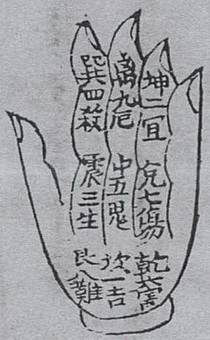 坤二宜
兌七傷
乾六富
離九厄
中五鬼
坎一吉
巽四殺
震三生
艮八難